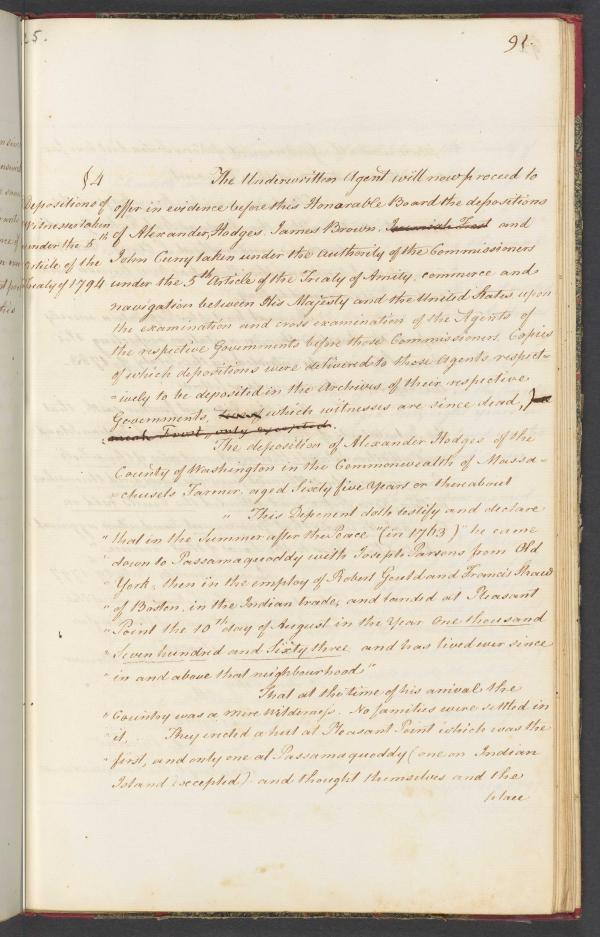 25.
91.
§4
Depositions of
Witnesses taken
under the 5th
Article of the
Treaty of 1794
The Underwritten Agent will now proceed to
offer in evidence before this Honorable Board the depositions
of Alexander Hodges. James Brown. Jeremiah Frost and
John Curry taken under the authority of the Commissioners
under the 5th Article of the Treaty of Amity, commerce and
navigation between His Majesty and the United States upon
the examination and cross examination of the Agents of
the respective Governments before those Commissioners. Copies
of which depositions were delivered to those Agents respect-
=ively to be deposited in the Archives of their respective
Governments, which witnesses are since dead, Jere
miah Frost, only excepted.
The deposition of Alexander Hodges of the
County of Washington in the Commonwealth of Massa-
=chusets Farmer, aged Sixty five Years or thereabout
" This Deponent doth testify and declare
" that in the Summer after the Peace "(in 1763)" he came
" down to Passamaquoddy with Joseph Parsons from Old
" York, then in the employ of Robert Gould and Francis Shaw
" of Boston, in the Indian trade, and landed at Pleasant
" Point the 10th day of August in the Year One thousand
" Seven hundred and Sixty three and has lived ever since
" in and above that neighbourhood"
That at the time of his arrival the
" Country was a mere wilderness. No families were settled in
" it. They erected a hut at Pleasant Point which was the
" first, and only one at Passamaquoddy (one on Indian
Island excepted) and thought themselves and the
place